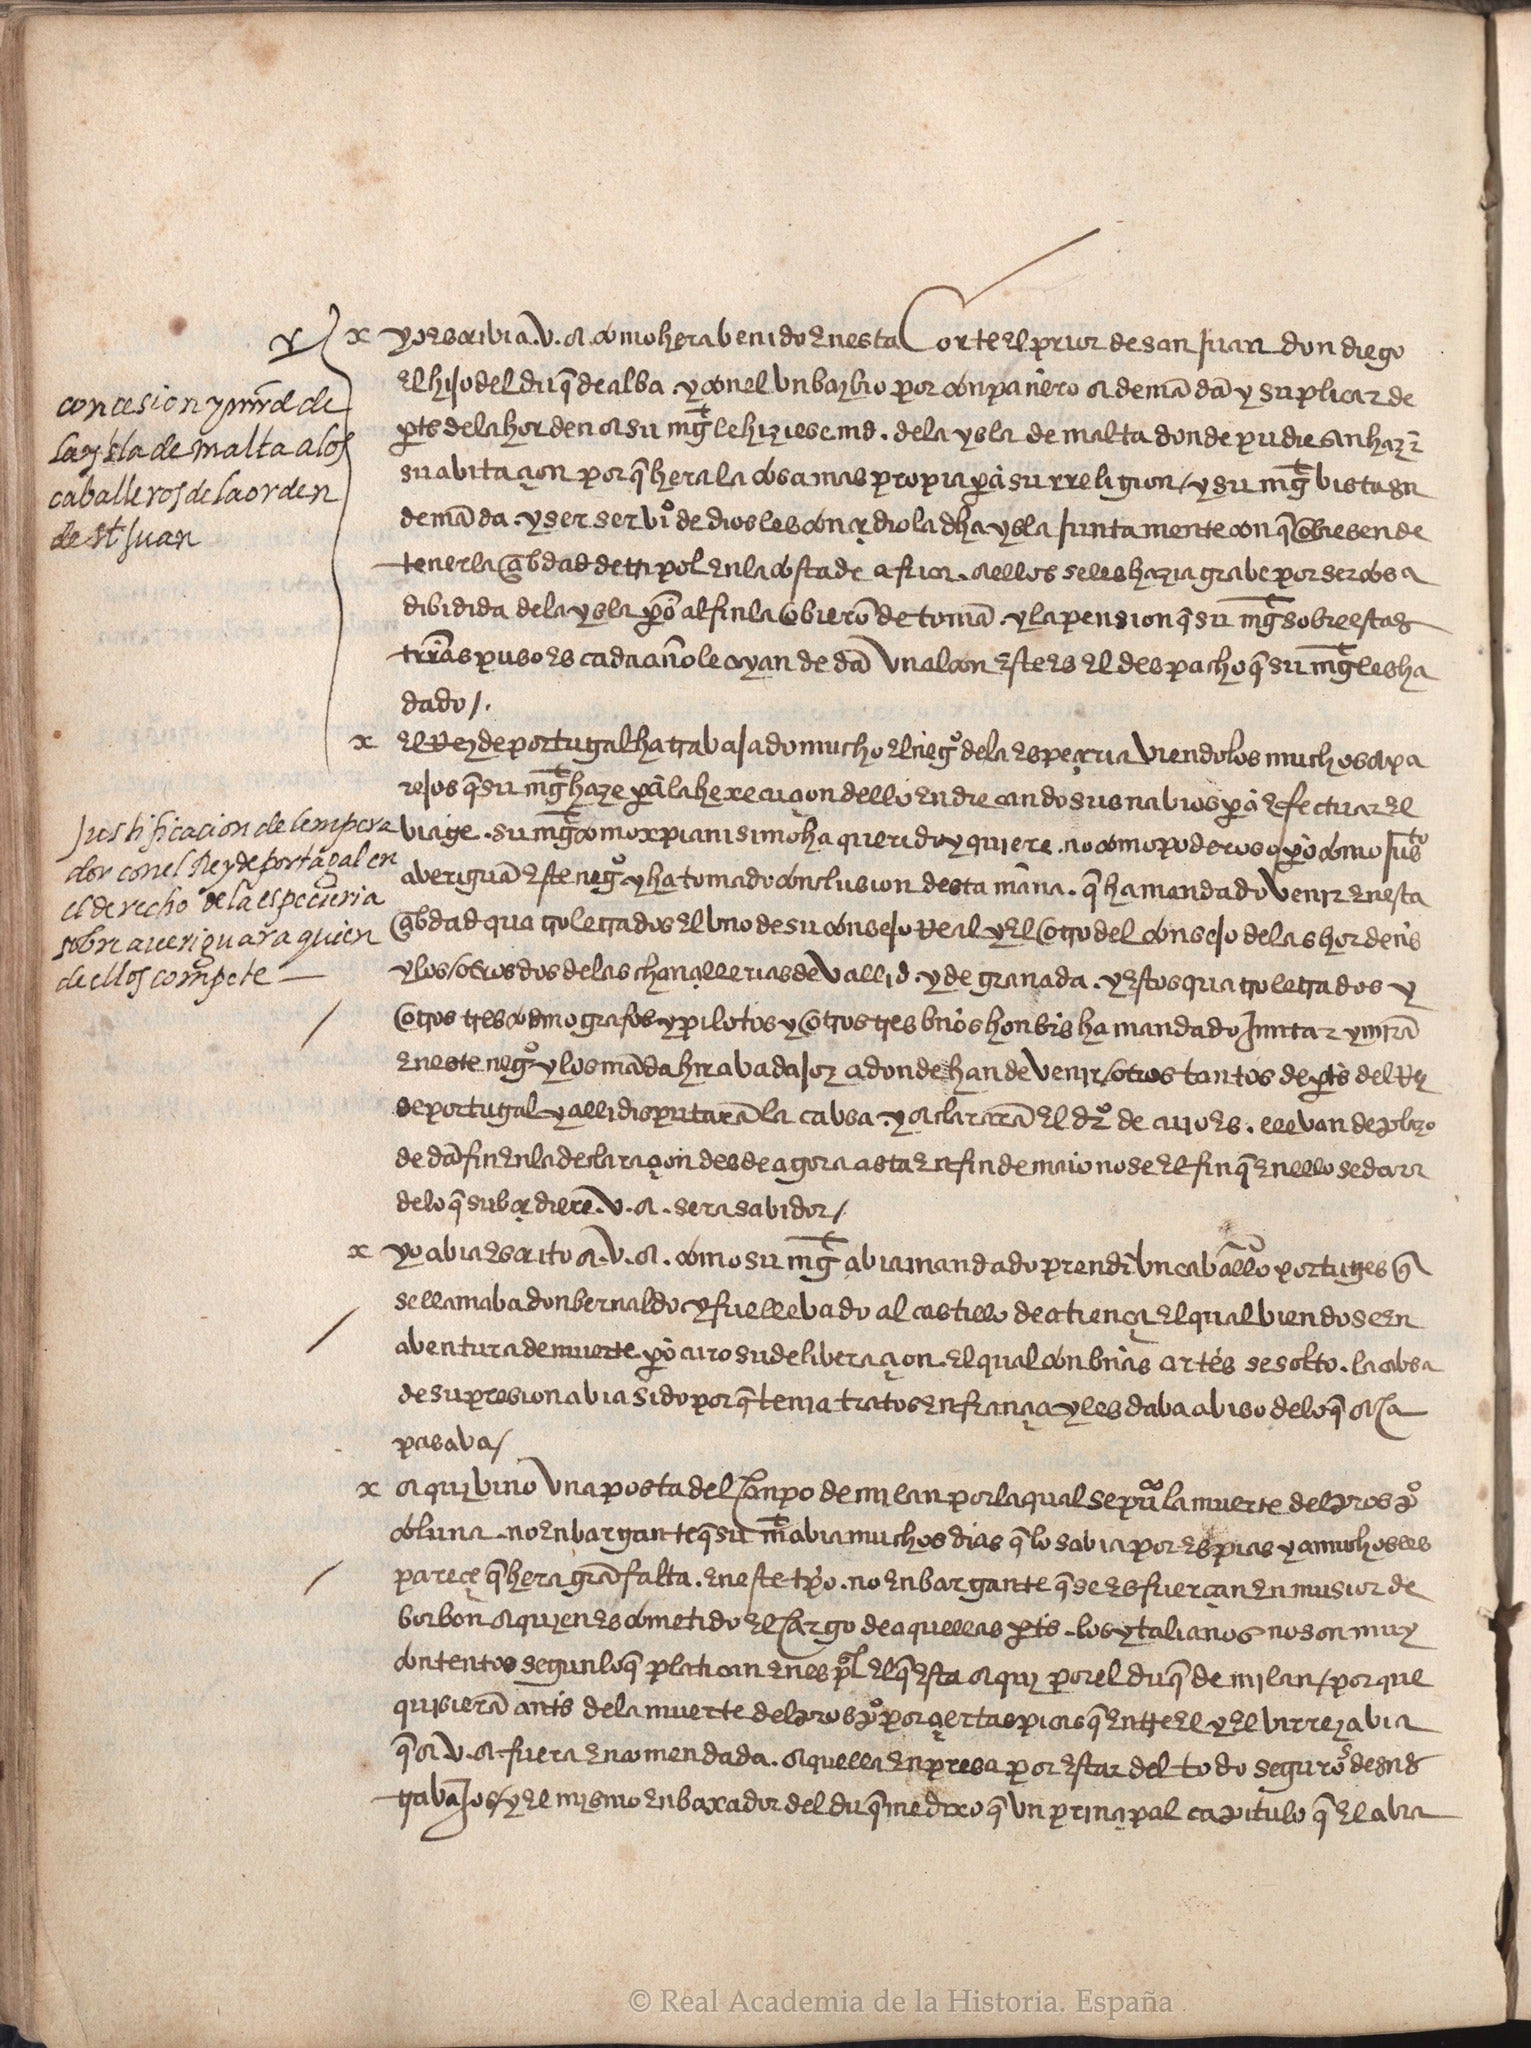 x yo escribi a. v. a. como hera benido en esta Corte el prior de san juan don diego
el hijo del duq̄ de alba y con el un baylio por conpañero a demādā y suplicar de
ptˢ de la horden a su mgt le hiziese md. de la ysla de malta donde pudiesan hazr
su abitaçon por q̄ hera la cosa mas propia pa su rreligion / y su mgt bista su
demāda . y ser servio de dios les conçedio la dha ysla juntamente con q̄ obiesen de
tener la çibdad de tripol en la costa de africa . a ellos se les hazia grabe por ser cosa
dibidida de la ysla po al fin la obierō de tomā . y la pension q̄ su mgt sobre estas
trras puso es cada año le ayan de dā un alcon este es el despacho q̄ su mgt les ha
dado /.
x el Rey de portugal ha trabajado mucho el nego de la espeçeria viendo los muchos apa
rejos q̄ su mgt haze pa la hexecuçion dello endreçando sus nabios pa efectuar el
viage . su mgt como xpianisimo ha querido y quiere . no como poderoso po como justo
aberiguā este nego y ha tomado conclusion desta mana . q̄ ha mandado venir en esta
çibdad quatro letrados el uno de su consejo Real y el otro del consejo de las hordenes
y los otros dos de las chançillerias de vallid . y de granada . y estos quatro letrados y
otros tres cosmografos y pilotos y otros tres bnos honbrs ha mandado juntar y mirā
en este nego y los māda hir a badajoz a donde han de venir otros tantos de ptˢ del Rey
de portugal y alli disputarā la cabsa . y aclararā el dro de cuyo es . llevan de plazo
de dā fin en la declaraçon desde agora asta en fin de maio no se el fin q̄ en ello se dara
de lo q̄ subçediere . v . a . sera sabidor /.
x yo abia escrito a . v . a . como su mgt abia mandado prendr un caballo portugues q̄
se llamaba don bernaldo y fue llebado al castillo de atiença el qual biendose en
abentura de muerte pocuro su deliberaçon . el qual con bnas artes se solto . la cabsa
de su presion abia sido por q̄ tenia tratos en françia y les daba abiso de lo q̄ aca
pasava /
x aqui vino una posta del canpo de milan por la qual se pu la muerte del prospo
coluna . no enbargante q̄ su mt abia muchos dias q̄ lo sabia por espias y a muchos les
pareçe q̄ hera grā falta . en este tpo . no enbargante q̄ se esfuerçan en musior de
borbon a quien es cometido el cargo de aquellas ptˢ . los ytalianos no son muy
contentos segun lo q̄ platican en espl el q̄ esta aqui por el duq̄ de milan / porque
quisierā antes de la muerte del prospo por çiertas picas q̄ entre el y el birrey abia
q̄ a v . a . fuera encomendada . aquella enpresa por estar del todo seguros de sus
trabajos / y el mismo enbaxador del duq̄ me dixo q̄ un prinçipal capitulo q̄ el abia
concesion y mrrd de
la ysla de malta a los
caballeros de la orden
de st Juan
Justificacion del empera
dor con el Rey de portugal en
el derecho de la especieria
sobre averiguar a quien
de ellos compete —
© Real Academia de la Historia. España